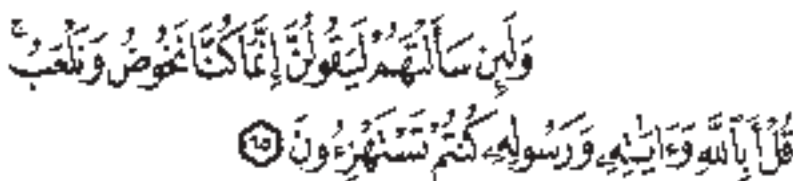 وَلَئِن سَأَلْتَهُمْ لَيَقُولُنَّ إِنَّمَا كُنَّا نَخُوضُ وَنَلْعَبُ ۚ
قُلْ أَبِٱللَّهِ وَءَايَـٰتِهِۦ وَرَسُولِهِۦ كُنتُمْ تَسْتَهْزِءُونَ ٦٥